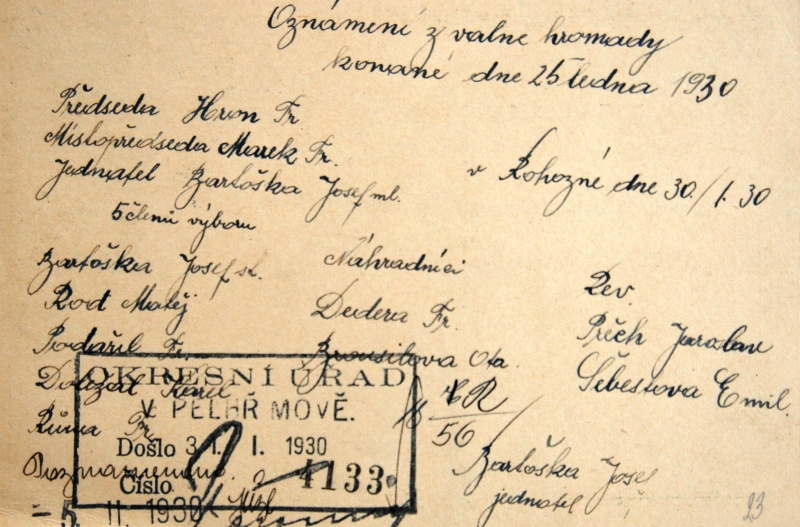 Oznámení z valne hromady
konané dne 25 ledna 1930
Předseda Hron Fr
Místopředseda Marek Fr.
Jednatel Bartoška Josef ml.
v Rohozné dne 30./1. 30
5 členů výboru
Bartoška Josef st.
Rod Matěj
Podařil Fr.
Doležal Karel
Růma Fr.
Náhradníci
Dudera Fr.
Brousilova Ota.
Rev.
Prěch Jaroslav
Šebestova Emil.
OKRESNÍ ÚŘAD
V PELHŘ MOVĚ.
Došlo 31. I. 1930
Číslo 4133
18 R
56
Bartoška Josef
jednatel
- 5. II. 1930
23